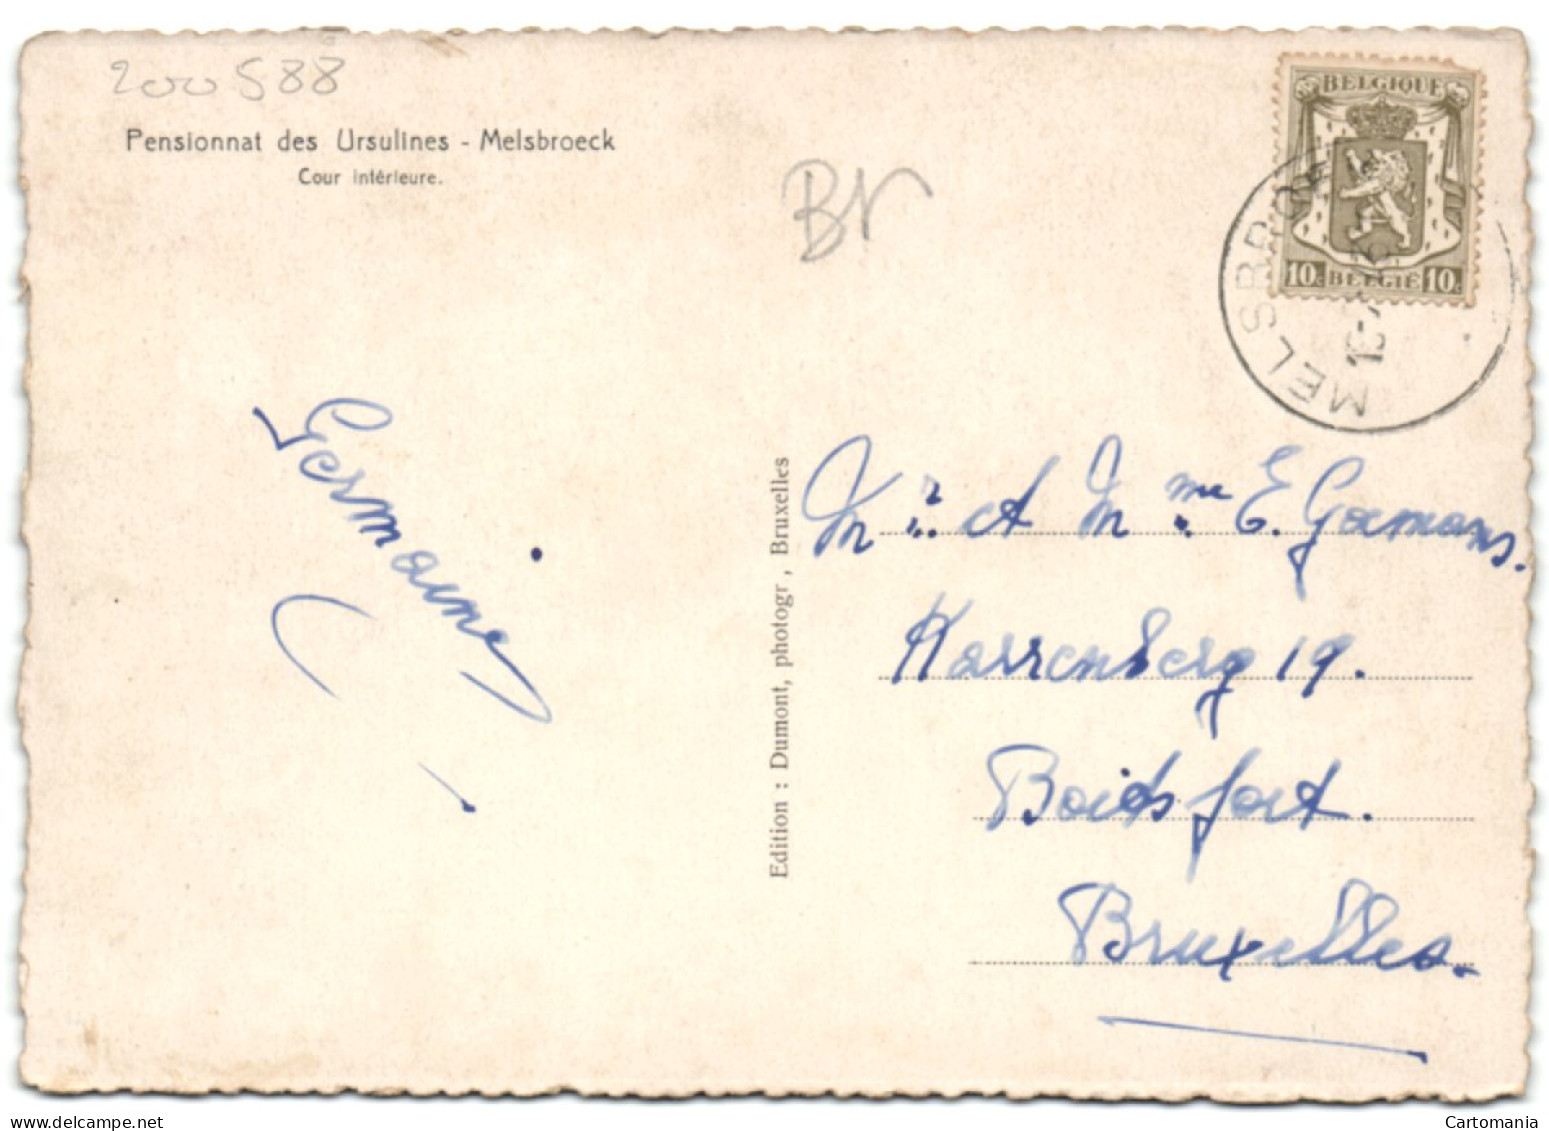 200588
Pensionnat des Ursulines - Melsbroeck
Cour intérieure.
Br
BELGIQUE
10c BELGIË 10c
MELSBRO
Germaine
Edition : Dumont, photogr, Bruxelles
Mr et Mme E. Goemans.
Karrenberg 19.
Boitsfort.
Bruxelles.
www.delcampe.net
Cartomania